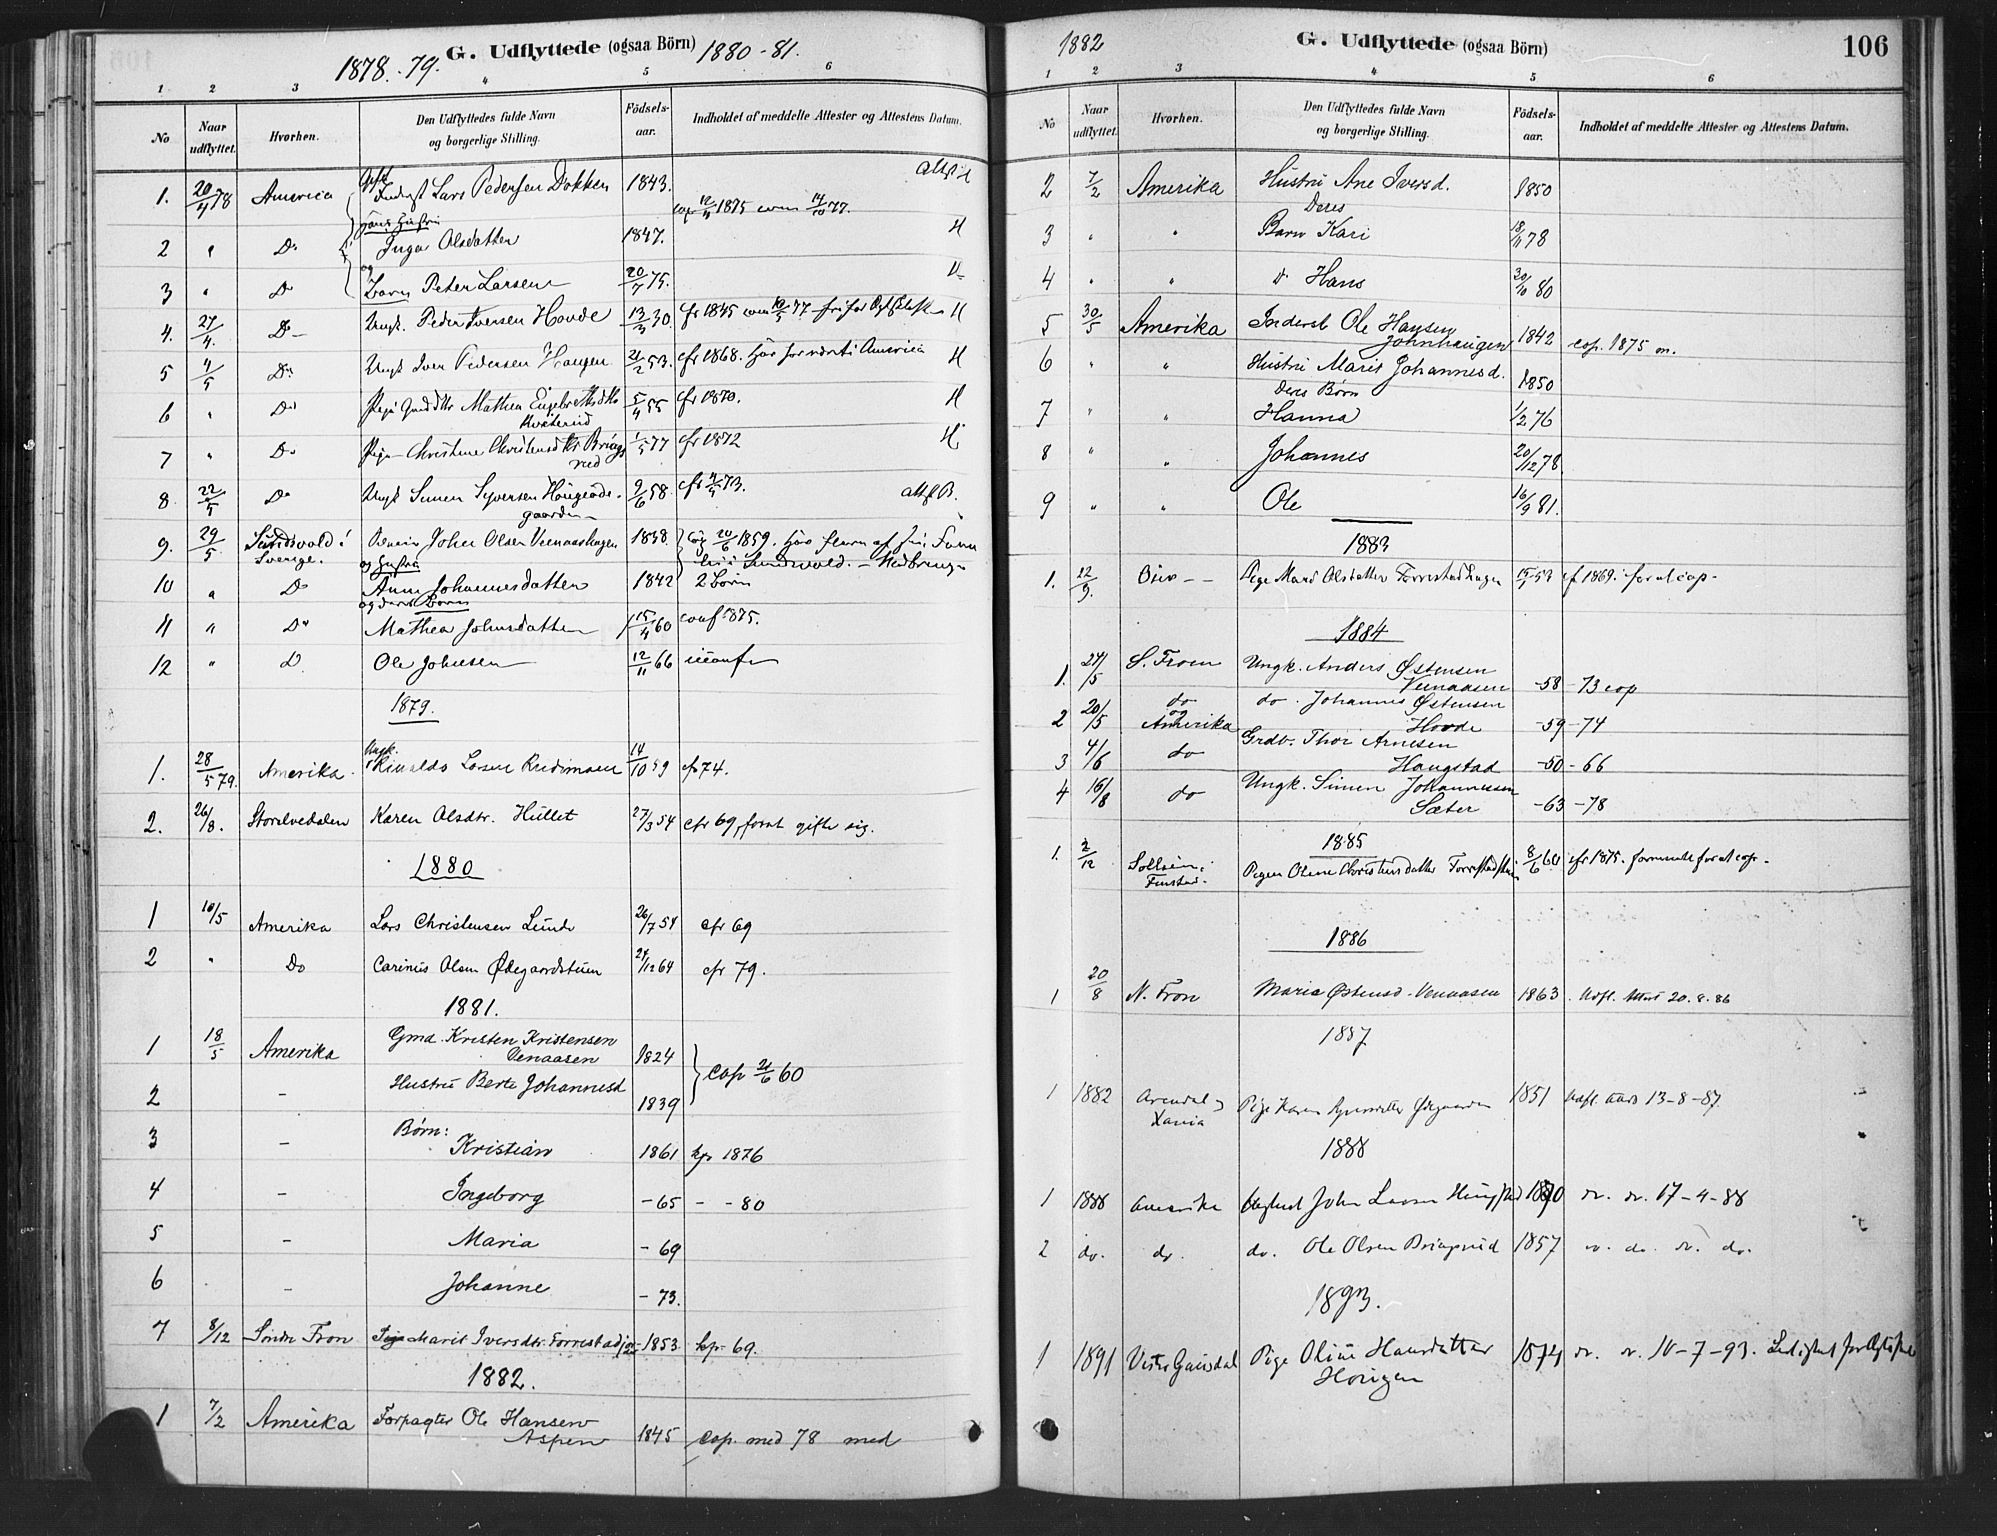 1878.-79.
G. Udflyttede (ogsaa Börn)
1880-81.
1 2 3 4 5 6
No
Naar udflyttet.
Hvorhen.
Den Udflyttedes fulde Navn
og borgerlige Stilling.
Födsels-
aar.
Indholdet af meddelte Attester og Attestens Datum.
1. 20/4 78 America Inderst Lars Pedersen Dokken 1843. cop 1875
2 " Do Inga Olsdatter 1847.
og
3 " Do Barn Peter Larsen 20/7 75.
4. 27/4. Do Ungk. Peder Iversen Hovde 13/3 30. cfr 1845
5 4/5 Do Ungk Iver Pedersen Haugen 21/2 53. cfr 1868. America
6 " Do Pige Mathea Engebretsdtr 5/4 55 cfr 1870.
7 " Do Pige Christine Christensdtr Bringsrud 1/5 77 cfr 1872
8 22/5 Do Ungk Simen Syversen Haugeödegaarden 9/6 58. cfr 73.
9. 29/5 Sundsvold i Sverige. John Olsen Veenaashagen 1838 1859.
og Hustru
10 " Do Anne Johannesdatter 1842 2 Börn
og deres Börn
11 " Do Mathea Johnsdatter 15/4 60 conf 1875.
12 " D Ole Johnsen 12/11 66
1879.
1. 28/5 79. Amerika. Ungk. Rinaldo Larsen 14/10 59 cfr 74.
2. 26/8. Storelvedalen Karen Olsdtr. Hullet 27/3 54 cfr 69, for at gifte sig.
1880
1 10/5 Amerika Lars Christensen Lunde 26/7 54 cfr 69
2 " Do Carinus Olsen Ødegaardstuen 24/12 64 cfr 79.
1881.
1 18/5 Amerika Gmd. Kristen Kristensen
Venaasen 1824
2 - Hustru Berte Johannesd 1839 cop 21/6 60
Børn:
3 - Kristian 1861 kfr 1876
4 - Ingeborg -65 - -80
5 - Maria -69
6 - Johanne -73.
7 8/12 Söndre Fron Pige Marit Iversdtr. Forrestad 1853 kfr 69.
1882.
1 7/2 Amerika Forpagter Ole Hansen
Aspen 1845 cop. med 78 med
1882
G. Udflyttede (ogsaa Börn)
106
1 2 3 4 5 6
No
Naar
udflyttet.
Hvorhen.
Den Udflyttedes fulde Navn
og borgerlige Stilling.
Födsels-
aar.
Indholdet af meddelte Attester og Attestens Datum.
2 7/2 Amerika Hustru Ane Iversd. 1850
Deres
3 " " Barn Kari 18/11 78
4 " " do Hans 30/10 80
5 30/5 Amerika Inderst Ole Hansen
Johnhaugen 1842 cop. 1875 m.
6 " " Hustru Marit Johannesd. 1850
Deres Börn
7 " " Hanna 1/2 76
8 " " Johannes 20/12 78
9 " " Ole 16/9 81.
1883
1. 22/9. Oier - - Pige Mari Olsdatter Forrestadhagen 15/1 53 cf 1869. for at cop.
1884
1. 24/5 S. Fron Ungk. Anders Østensen
Veenaasen -58 -73 cop
2 20/5 do og Amerika do. Johannes Østensen
Hovde -59 -74
3 4/6 do Grdbr. Thor Arnesen
Haugstad -50 -66
4 16/8 do Ungk. Simen Johannesen
Sæter -63 -78
1885
1. 2/12 Sollien, Finstad. Pigen Oline Christensdatter 8/6 60 cfr 1875. for at cop.
1886
1 20/8 N. Fron Marie Østensd. Veenaasen 1863. Udfl. Attest 20.8.86
1887
1 1882 Arendal, Xania Pige Karen Ødegaarden 1851 Udfl. 13-8-87.
1888
1 1888 Amerika Ungkarl John Larsen 1870 do. do. 17-4-88
2 do. do. do. Ole Olsen Bringsrud 1857 do. do. do. do.
1893.
1 1891 Vestre Gausdal Pige Oline Hansdatter
Horigen 1874 do. do. 10-7-93.